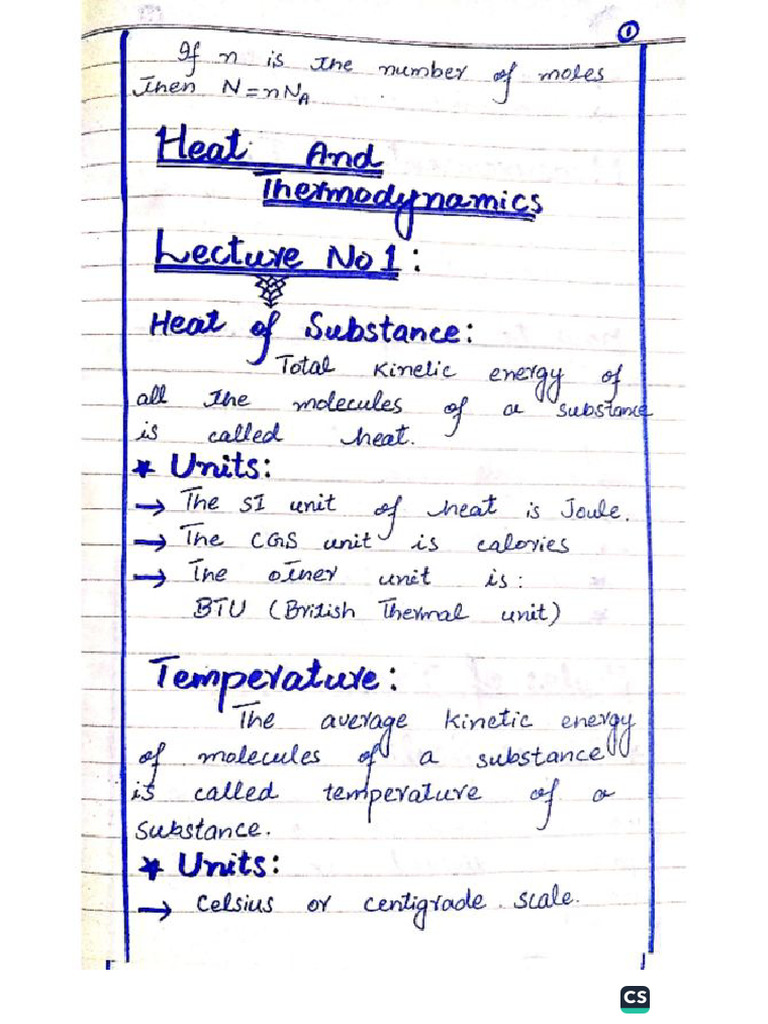 1
If n is the number of moles
then N = nNA
Heat And
Thermodynamics
Lecture No 1:
Heat of Substance:
Total kinetic energy of
all the molecules of a substance
is called heat.
* Units:
→ The SI unit of heat is Joule.
→ The CGS unit is calories
→ The other unit is:
BTU (British Thermal unit)
Temperature:
The average kinetic energy
of molecules of a substance
is called temperature of a
substance.
* Units:
→ Celsius or centigrade scale.
CS